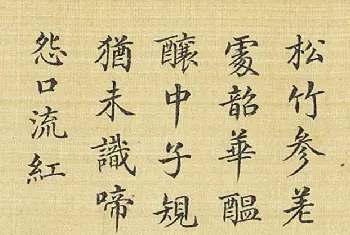 松竹參差
處韶華醞
釀中子規
猶未識啼
怨口流紅